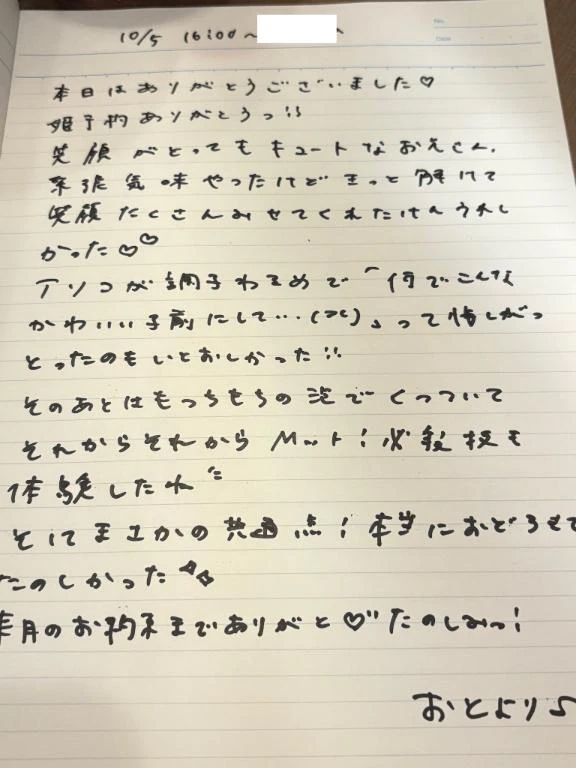 No.
Date
10/5 16:00～
本日はありがとうございました♡
姫予約ありがとうっ!!
笑顔がとってもキュートなおえさん。
緊張気味やったけどきっと解けて
笑顔たくさんみせてくれたけんうれし
かった♡♡
アソコが調子わるめで「何でこんな
かわいい子前にして…(泣)」って悔しがっ
とったのもいとおしかった!!
そのあとはもっちもちの泡でくっついて
それからそれからMット!必殺技も
体験したね
そしてまさかの共通点!本当におどろきで
たのしかった
来月のお約束までありがと♡たのしみっ!
おとより♪